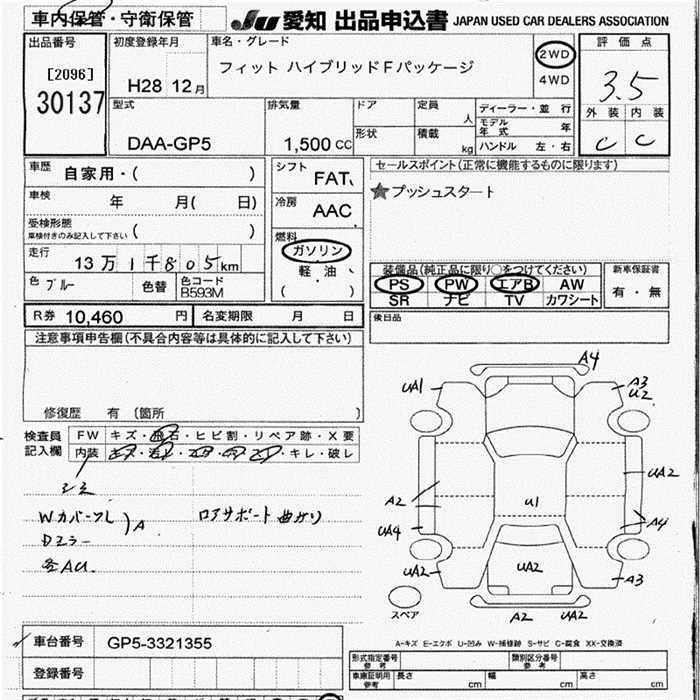 車内保管・守衛保管
JU 愛知 出品申込書 JAPAN USED CAR DEALERS ASSOCIATION
出品番号
[2096]
30137
初度登録年月
H28 12月
車名・グレード
フィット ハイブリッドFパッケージ
2WD
4WD
評価点
3.5
外装 内装
C C
型式
DAA-GP5
排気量
1,500 CC
ドア
形状
定員 人
積載 kg
ディーラー・並行
モデル年式 年
ハンドル 左・右
車歴 自家用・( )
車検 年 月( 日)
受検形態
車検付きのみ記入して下さい ( )
走行 13万1千805km
色 ブルー
色替
色コード
B593M
シフト
FAT
冷房
AAC
燃料
ガソリン
軽油
( )
セールスポイント(正常に機能するものに限ります)
★プッシュスタート
装備品(純正品に限り〇をつけてください)
PS PW エアB AW
SR ナビ TV カワシート
新車保証書
有・無
R券 10,460 円 名変期限 月 日
後日品
注意事項申告欄(不具合内容等は具体的に記入して下さい)
修復歴 有 〔箇所 〕
検査員
記入欄
FW キズ・飛石・ヒビ割・リペア跡・X要
内装 ・キレ・破レ
Wカバーズレ
Dミラー
A
各AU
ロアサポート曲がり
A4
UA1
A3
U2
UA2
A2
U1
UA4
A4
UA2
UA2
A3
スペア
A2 UA2
A-キズ E-エクボ U-凹み W-補修跡 S-サビ C-腐食 XX-交換済
車台番号 GP5-3321355
登録番号
形式指定番号
参考
類別区分番号
参考
車庫証明用
参考
長さ cm 幅 cm 高さ cm